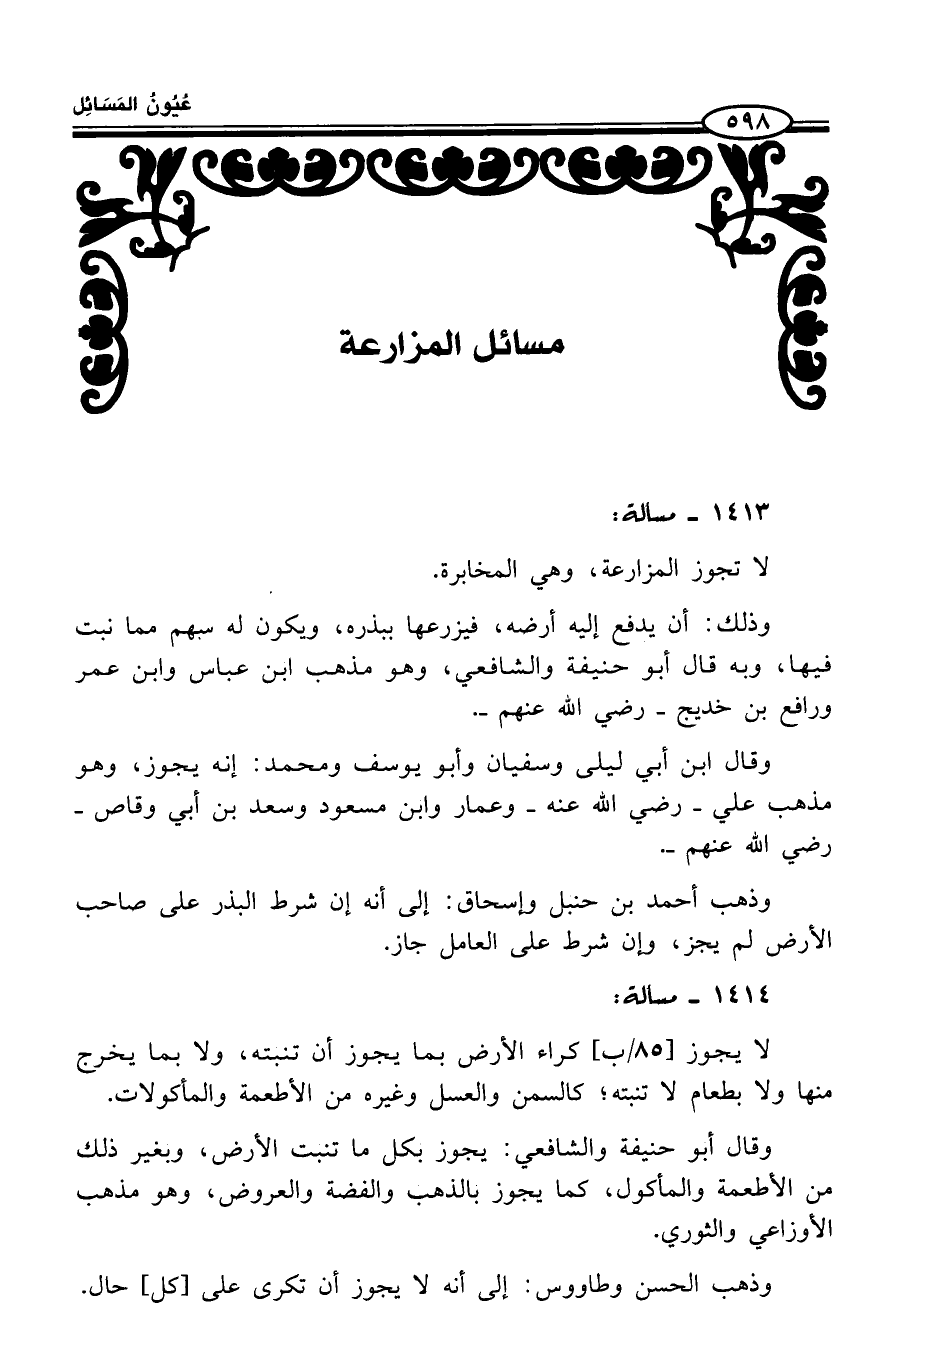 عُيُونُ المَسَائِل
٥٩٨
مسائل المزارعة
١٤١٣ ـ مسألة:
لا تجوز المزارعة، وهي المخابرة.
وذلك: أن يدفع إليه أرضه، فيزرعها ببذره، ويكون له سهم مما نبت
فيها، وبه قال أبو حنيفة والشافعي، وهو مذهب ابن عباس وابن عمر
ورافع بن خديج ـ رضي الله عنهم ـ.
وقال ابن أبي ليلى وسفيان وأبو يوسف ومحمد: إنه يجوز، وهو
مذهب علي ـ رضي الله عنه ـ وعمار وابن مسعود وسعد بن أبي وقاص ـ
رضي الله عنهم ـ.
وذهب أحمد بن حنبل وإسحاق: إلى أنه إن شرط البذر على صاحب
الأرض لم يجز، وإن شرط على العامل جاز.
١٤١٤ ـ مسألة:
لا يجوز [٨٥/ب] كراء الأرض بما يجوز أن تنبته، ولا بما يخرج
منها ولا بطعام لا تنبته؛ كالسمن والعسل وغيره من الأطعمة والمأكولات.
وقال أبو حنيفة والشافعي: يجوز بكل ما تنبت الأرض، وبغير ذلك
من الأطعمة والمأكول، كما يجوز بالذهب والفضة والعروض، وهو مذهب
الأوزاعي والثوري.
وذهب الحسن وطاووس: إلى أنه لا يجوز أن تكرى على [كل] حال.